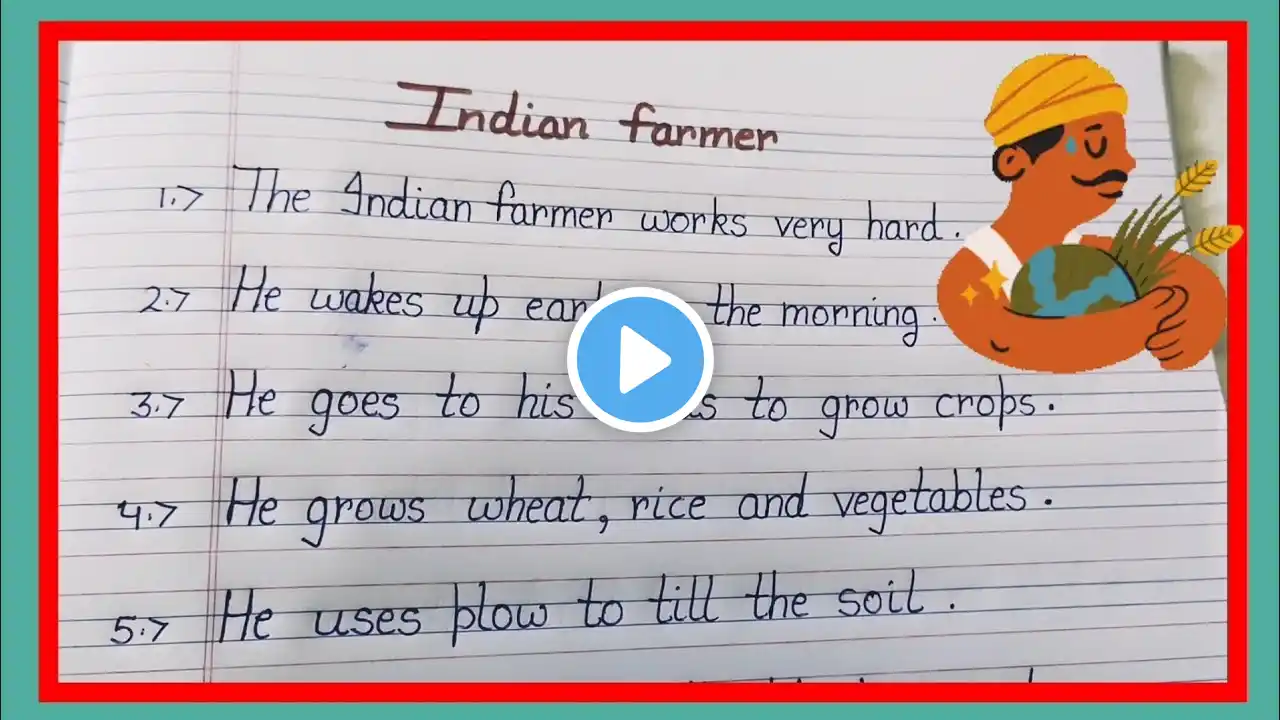 Indian farmer
1.> The Indian farmer works very hard.
2.> He wakes up the morning.
3.> He goes to his to grow crops.
4.> He grows wheat, rice and vegetables.
5.> He uses plow to till the soil.